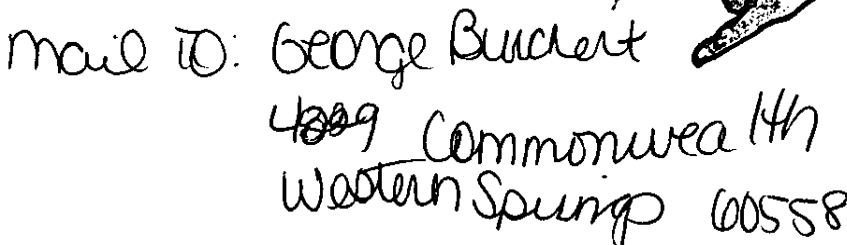 mail to: George Burchert
Commonwealth
Western Springs 60558